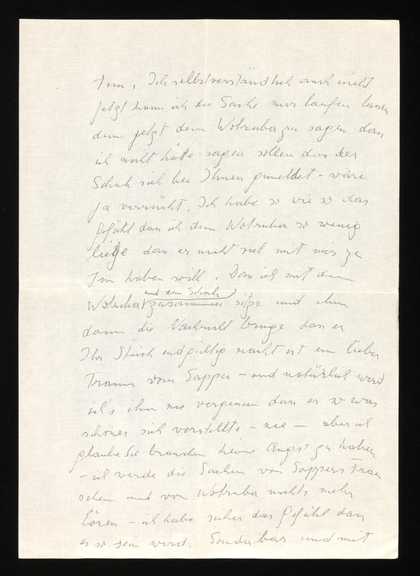 tun. Ich selbstverständlich auch nicht
jetzt kann ich die Sache nur laufen lassen
denn jetzt dem Wotruba zu sagen dass
ich nicht hätte sagen sollen dass der
sich bei Ihnen gemeldet - wäre
ja verrückt. Ich habe so wie so das
Gefühl dass ich dem Wotruba so wenig
liege dass er nicht viel mit mir zu
tun haben will. Dass ich mit dem
und ein
Wotruba zusammen sitze und ihm
dann die Nachricht bringe dass er
Ihr Stück endgültig macht ist ein lieber
Traum vom Sapper - und natürlich werd
ich's ihm nie vergessen dass er so was
schönes sich vorstellte - nie - aber ich
glaube Sie brauchen keine Angst zu haben
- ich werde die Sachen von Sappers Frau
sehen und von Wotruba nichts mehr
hören - ich habe sicher das Gefühl dass
es so sein wird. Sonderbar und mit